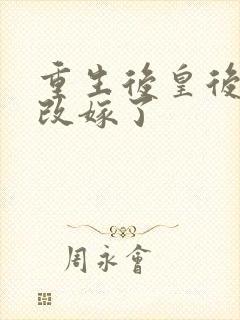 重生後皇後
改嫁了
周永會